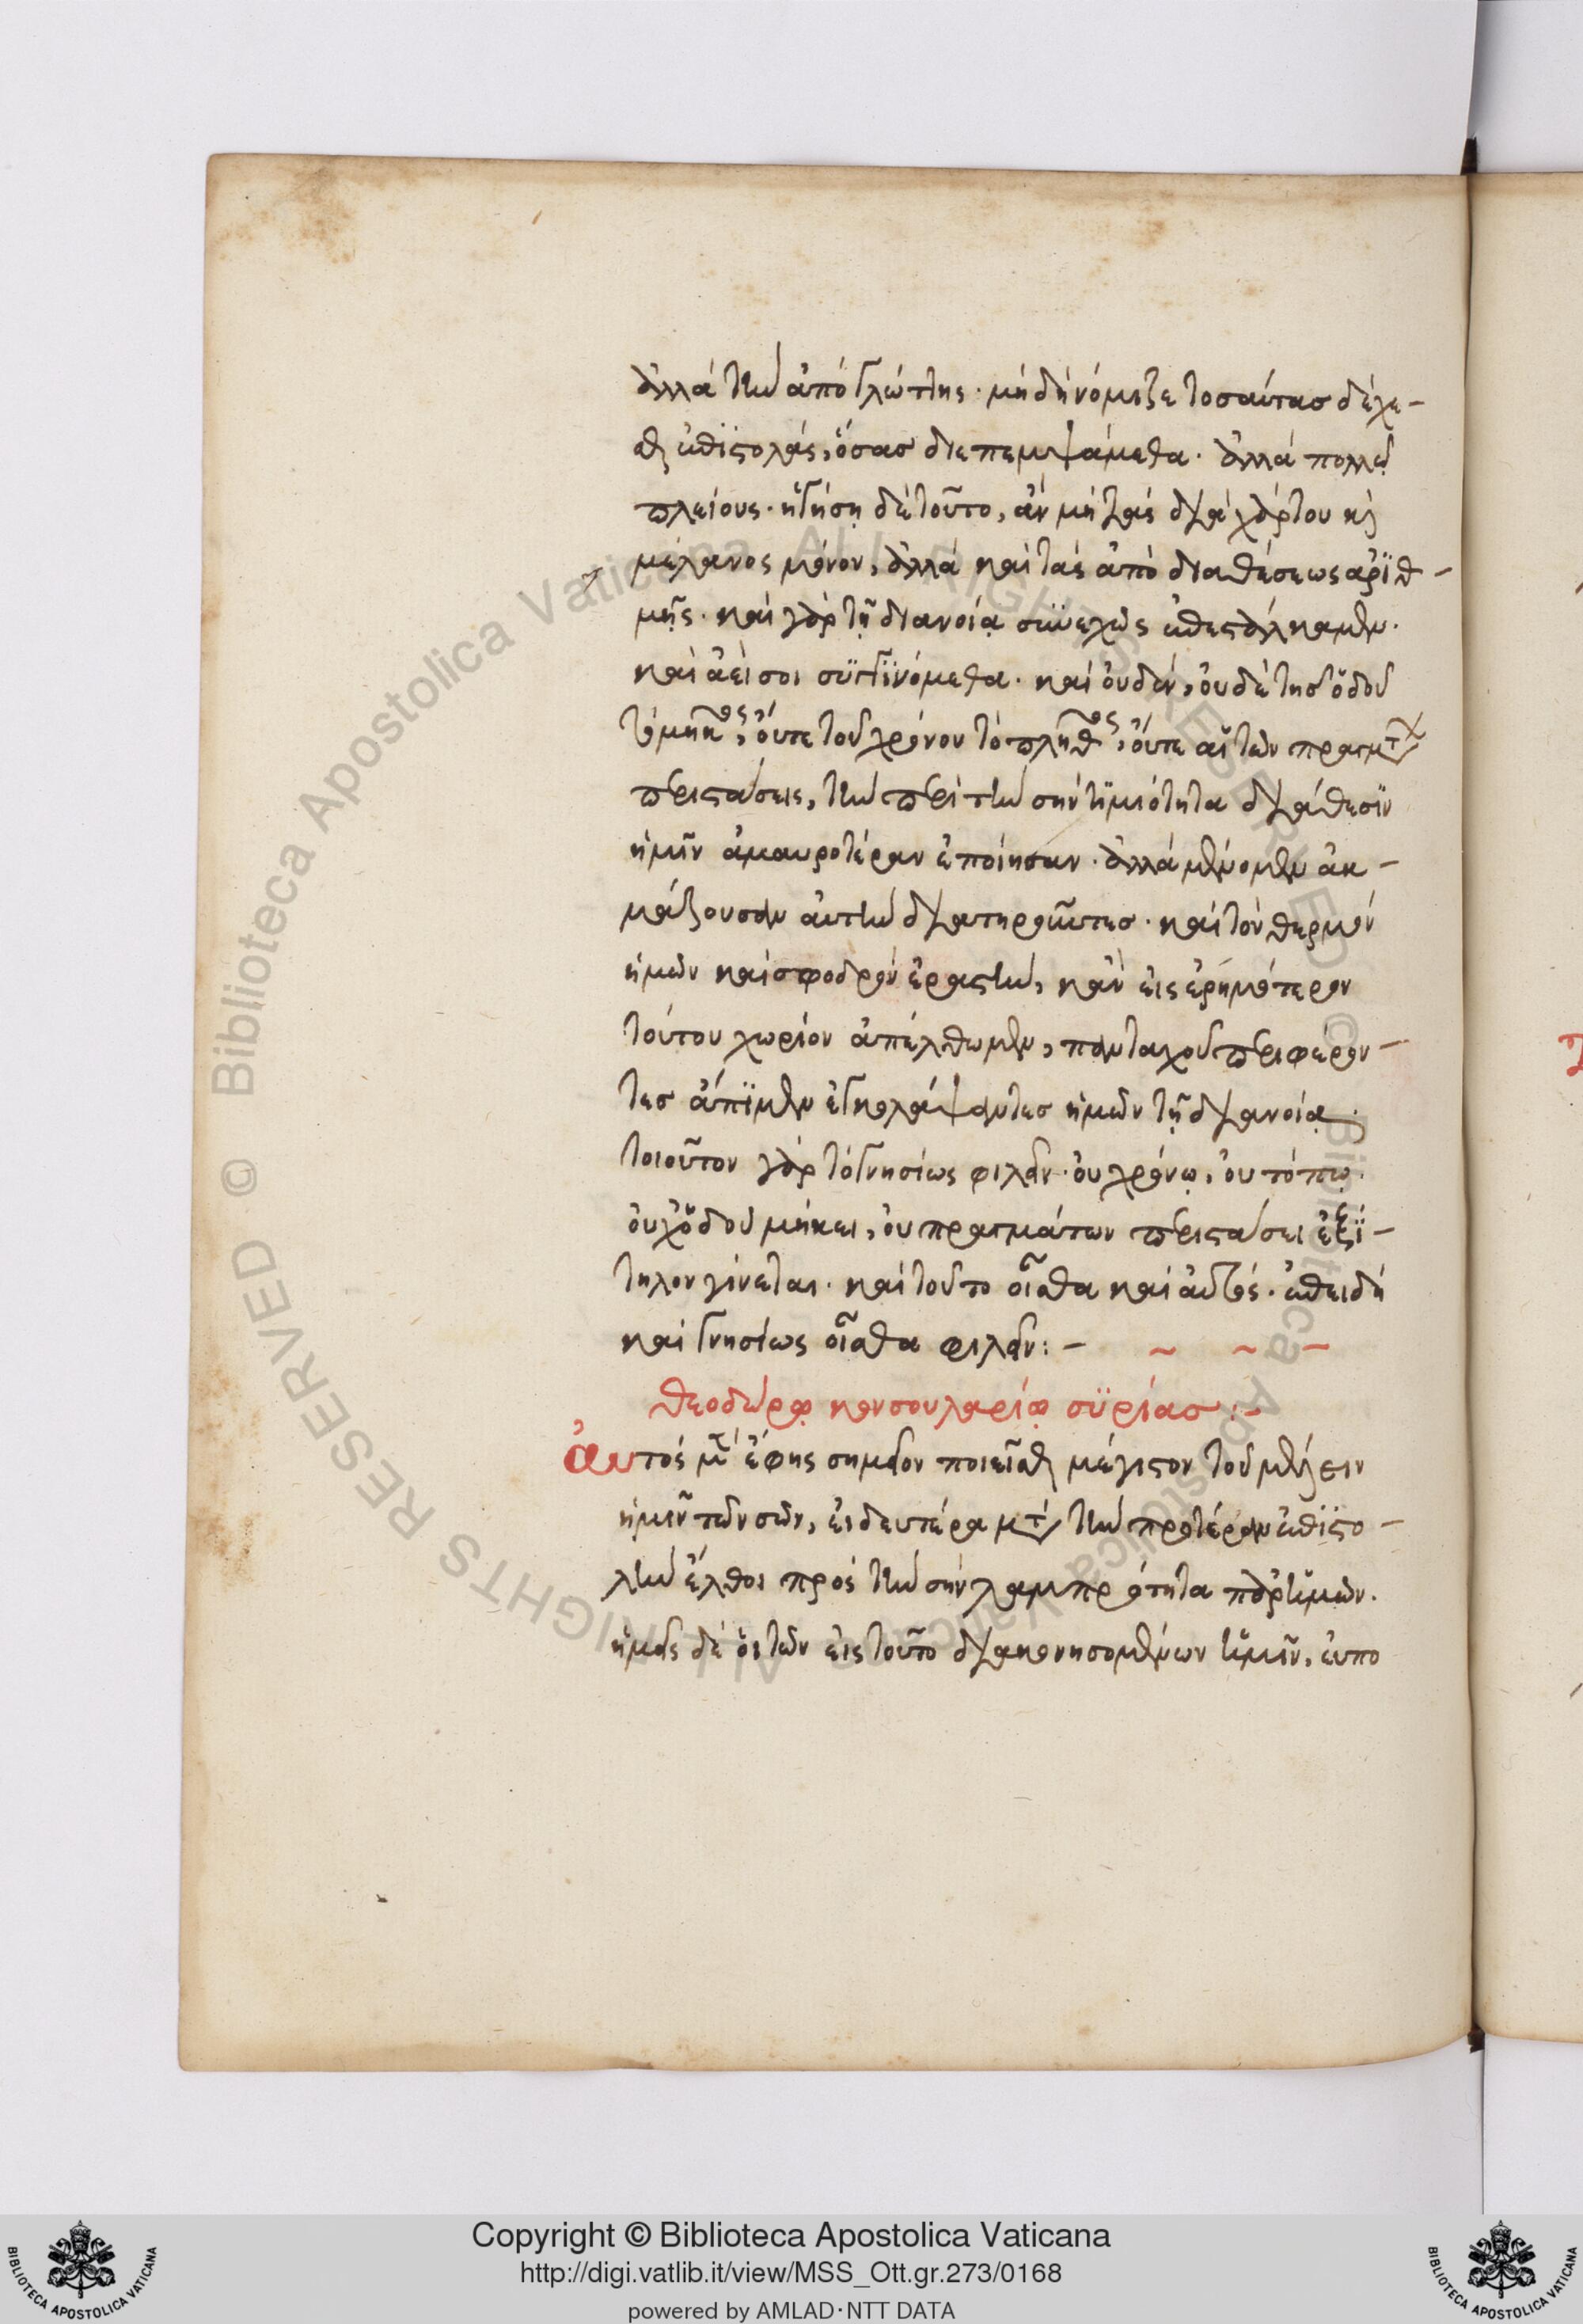 ἀλλὰ τὴν ἀπὸ γλώττης· μὴ δὴ νόμιζε τοσαύτας δέχε-
σθαι ἐπιστολάς, ὅσας διεπεμψάμεθα. ἀλλὰ πολλῷ
πλείους· ἡγήσῃ δὲ τοῦτο, ἂν μὴ τὰς διὰ χάρτου καὶ
μέλανος μόνον, ἀλλὰ καὶ τὰς ἀπὸ διαθέσεως ἀριθ-
μῇς. καὶ γὰρ τῇ διανοίᾳ συνεχῶς ἐπεστάλκαμεν.
καὶ ἀεί σοι συγγινόμεθα. καὶ οὐδὲν, οὐδὲ τῆς ὁδοῦ
τὸ μῆκος, οὔτε τοῦ χρόνου τὸ πλῆθος, οὔτε αἱ τῶν πραγμάτων
περιστάσεις, τὴν περὶ τὴν σὴν τιμιότητα διάθεσιν
ἡμῖν ἀμαυροτέραν ἐποίησαν. ἀλλὰ μένομεν ἀκ-
μάζουσαν αὐτὴν διατηροῦντες. καὶ τὸν θερμὸν
ἡμῶν καὶ σφοδρὸν ἐραστὴν, κἂν εἰς ἐρημότερον
τούτου χωρίον ἀπέλθωμεν, πανταχοῦ περιφέρον-
τες ἄπιμεν ἐγκολάψαντες ἡμῶν τῇ διανοίᾳ.
τοιοῦτον γὰρ τὸ γνησίως φιλεῖν. οὐ χρόνῳ, οὐ τόπῳ.
οὐχ ὁδοῦ μήκει, οὐ πραγμάτων περιστάσει ἐξί-
τηλον γίνεται. καὶ τοῦτο οἶσθα καὶ αὐτός. ἐπειδὴ
καὶ γνησίως οἶσθα φιλεῖν:-
Θεοδώρῳ κονσουλαρίῳ συρίας:-
Αὐτὸς μὲν ἔφης σημεῖον ποιεῖσθαι μέγιστον τοῦ μέλειν
ἡμῖν τῶν σῶν, εἰ δευτέρα μετὰ τὴν προτέραν ἐπιστο-
λὴν ἔλθοι πρὸς τὴν σὴν λαμπρότητα παρ' ἡμῶν.
ἡμᾶς δὲ ὁ τῶν εἰς τοῦτο διακονησομένων ἡμῖν, εὐπο